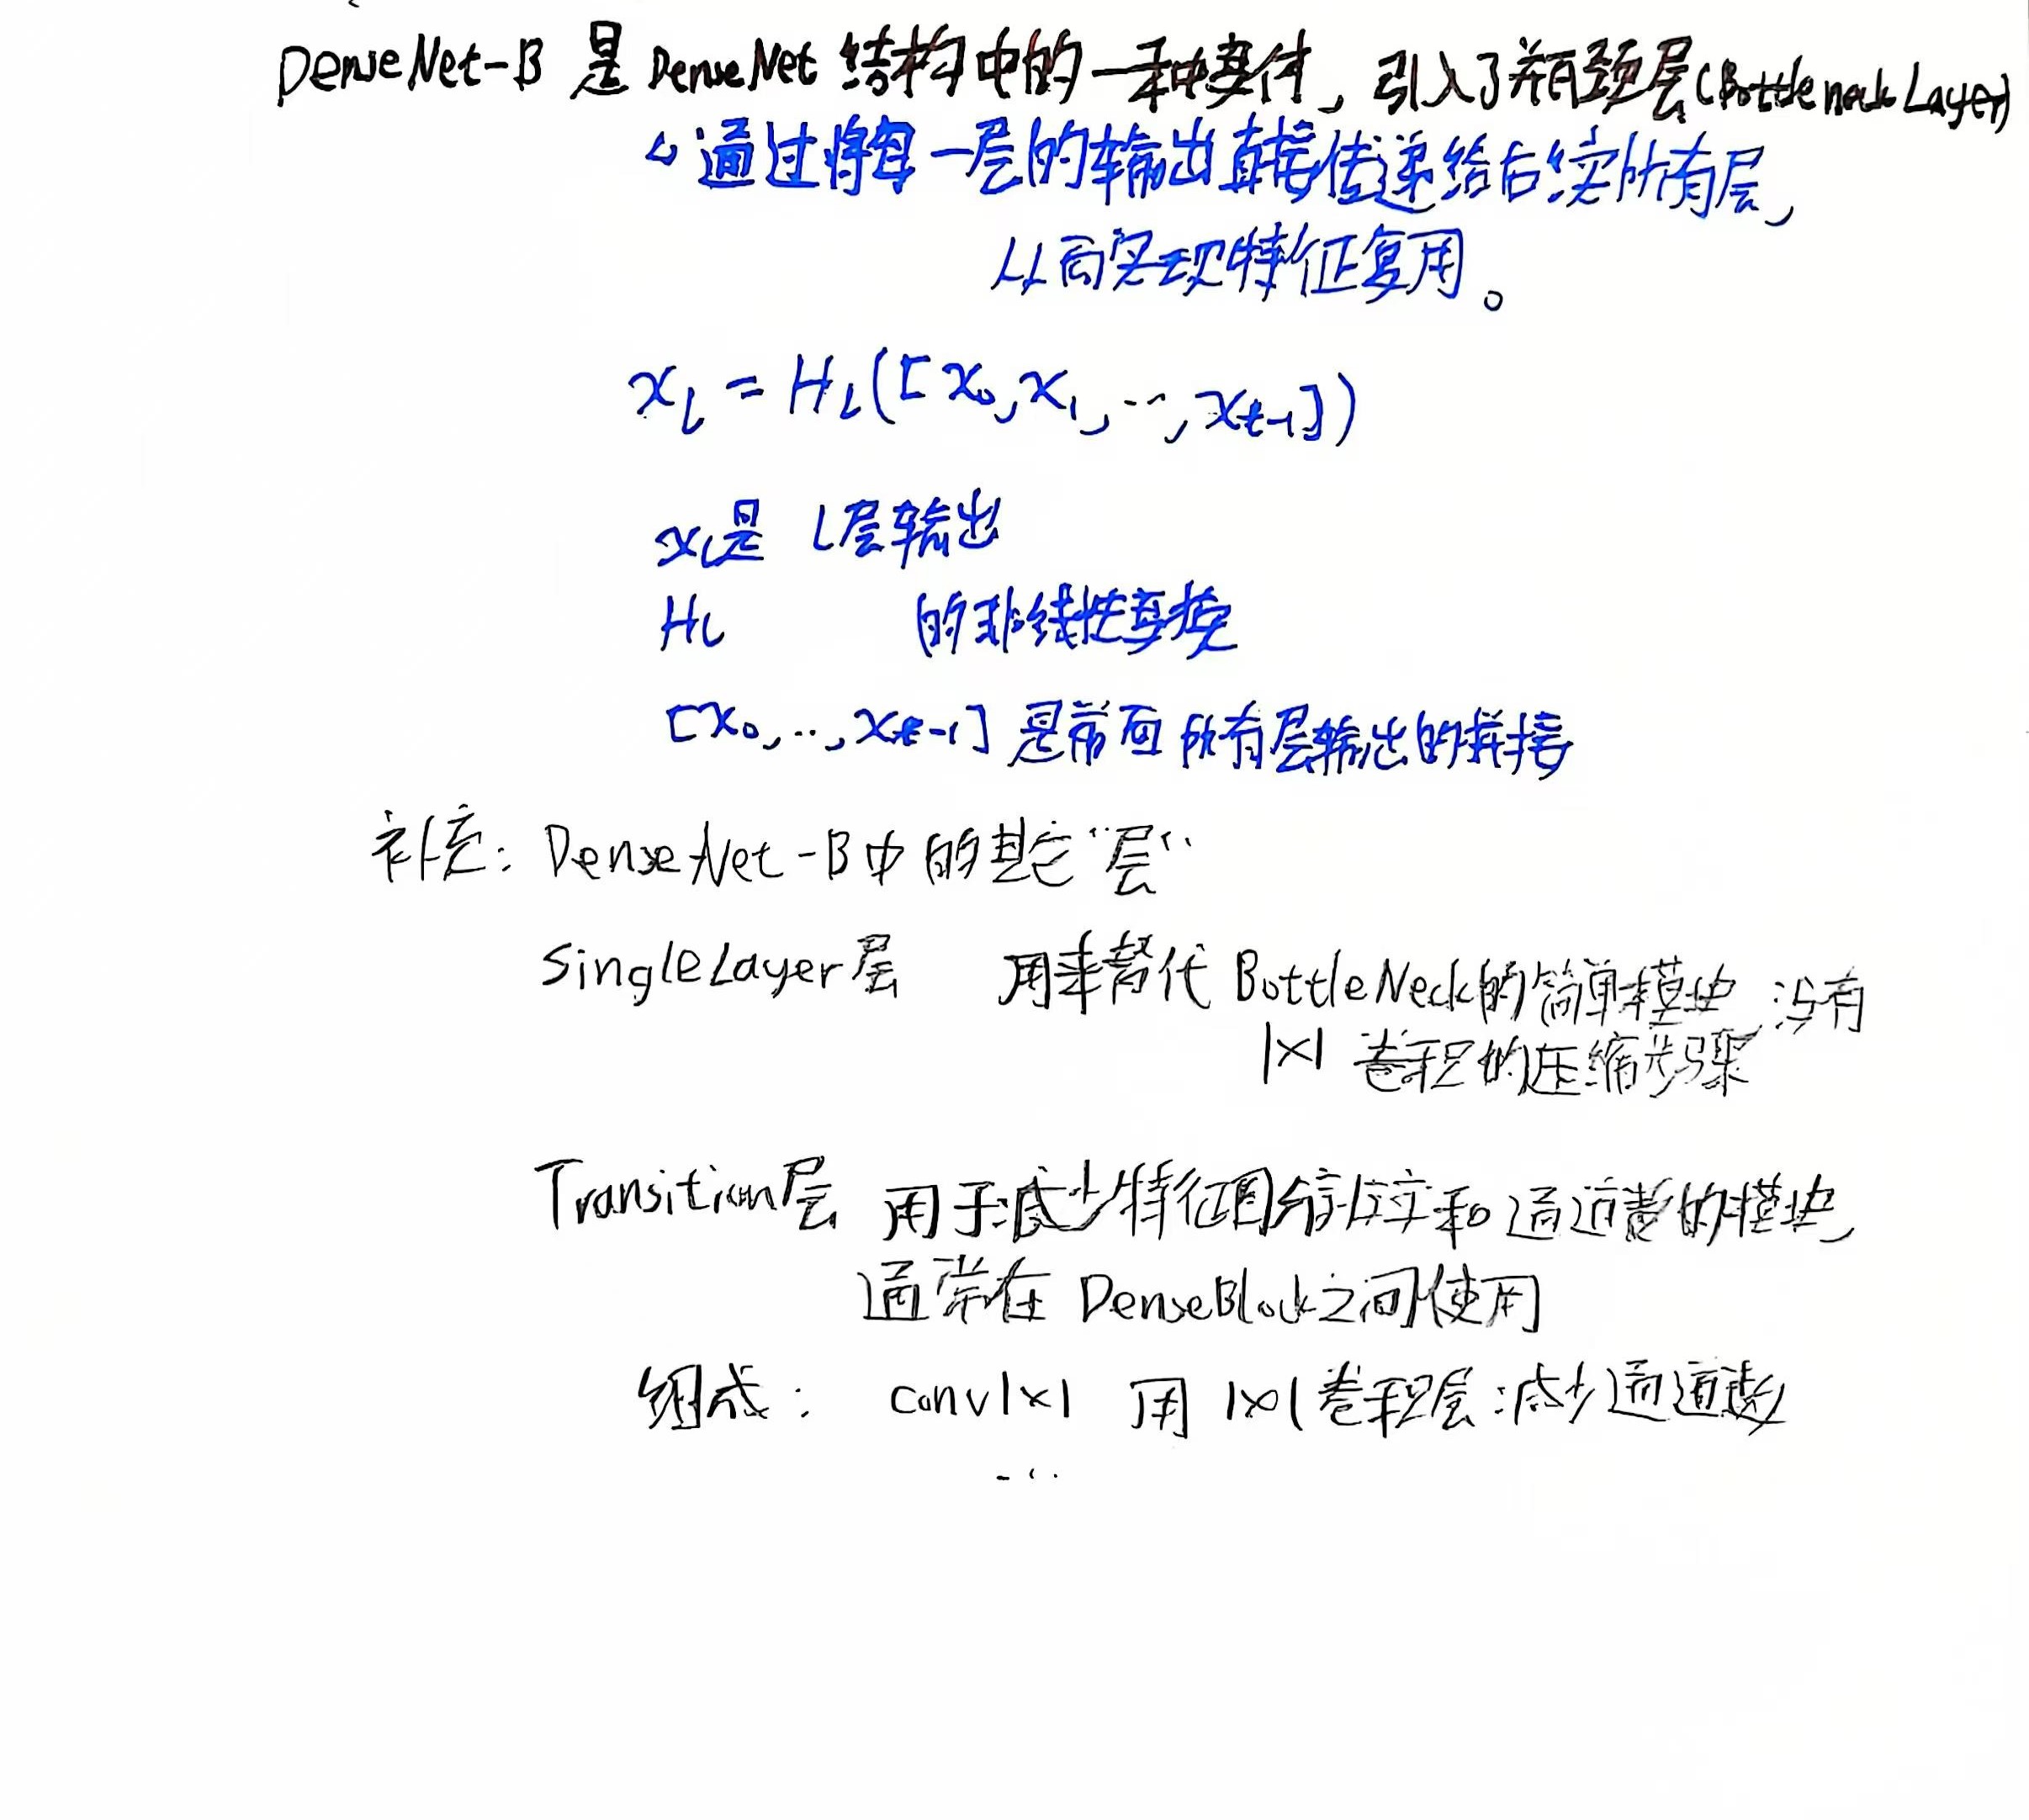 DenseNet-B 是 DenseNet 结构中的一种变体，引入了瓶颈层(Bottleneck Layer)
通过将每一层的输出直接传递给后续所有层，
从而实现特征复用。
x_l = H_l([x_0, x_1, ..., x_{t-1}])
x_l是 l层输出
H_l 的非线性变换
[x_0, .., x_{t-1}] 是前面所有层输出的拼接
补充：DenseNet-B中的其它“层”
SingleLayer层 用来替代BottleNeck的简单模块，没有
1×1 卷积的压缩步骤
Transition层 用于减少特征图和通道数的模块，
通常在 DenseBlock之间使用
组成： conv1×1 用 1×1卷积层减少通道数
...